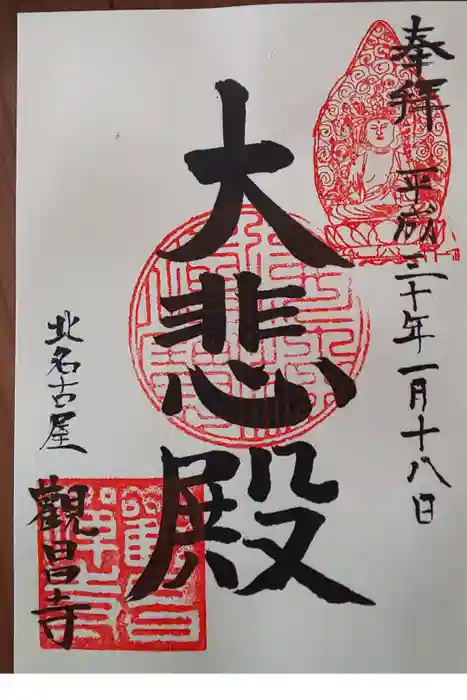 奉拝
平成三十年一月十八日
大悲殿
北名古屋
觀昌寺